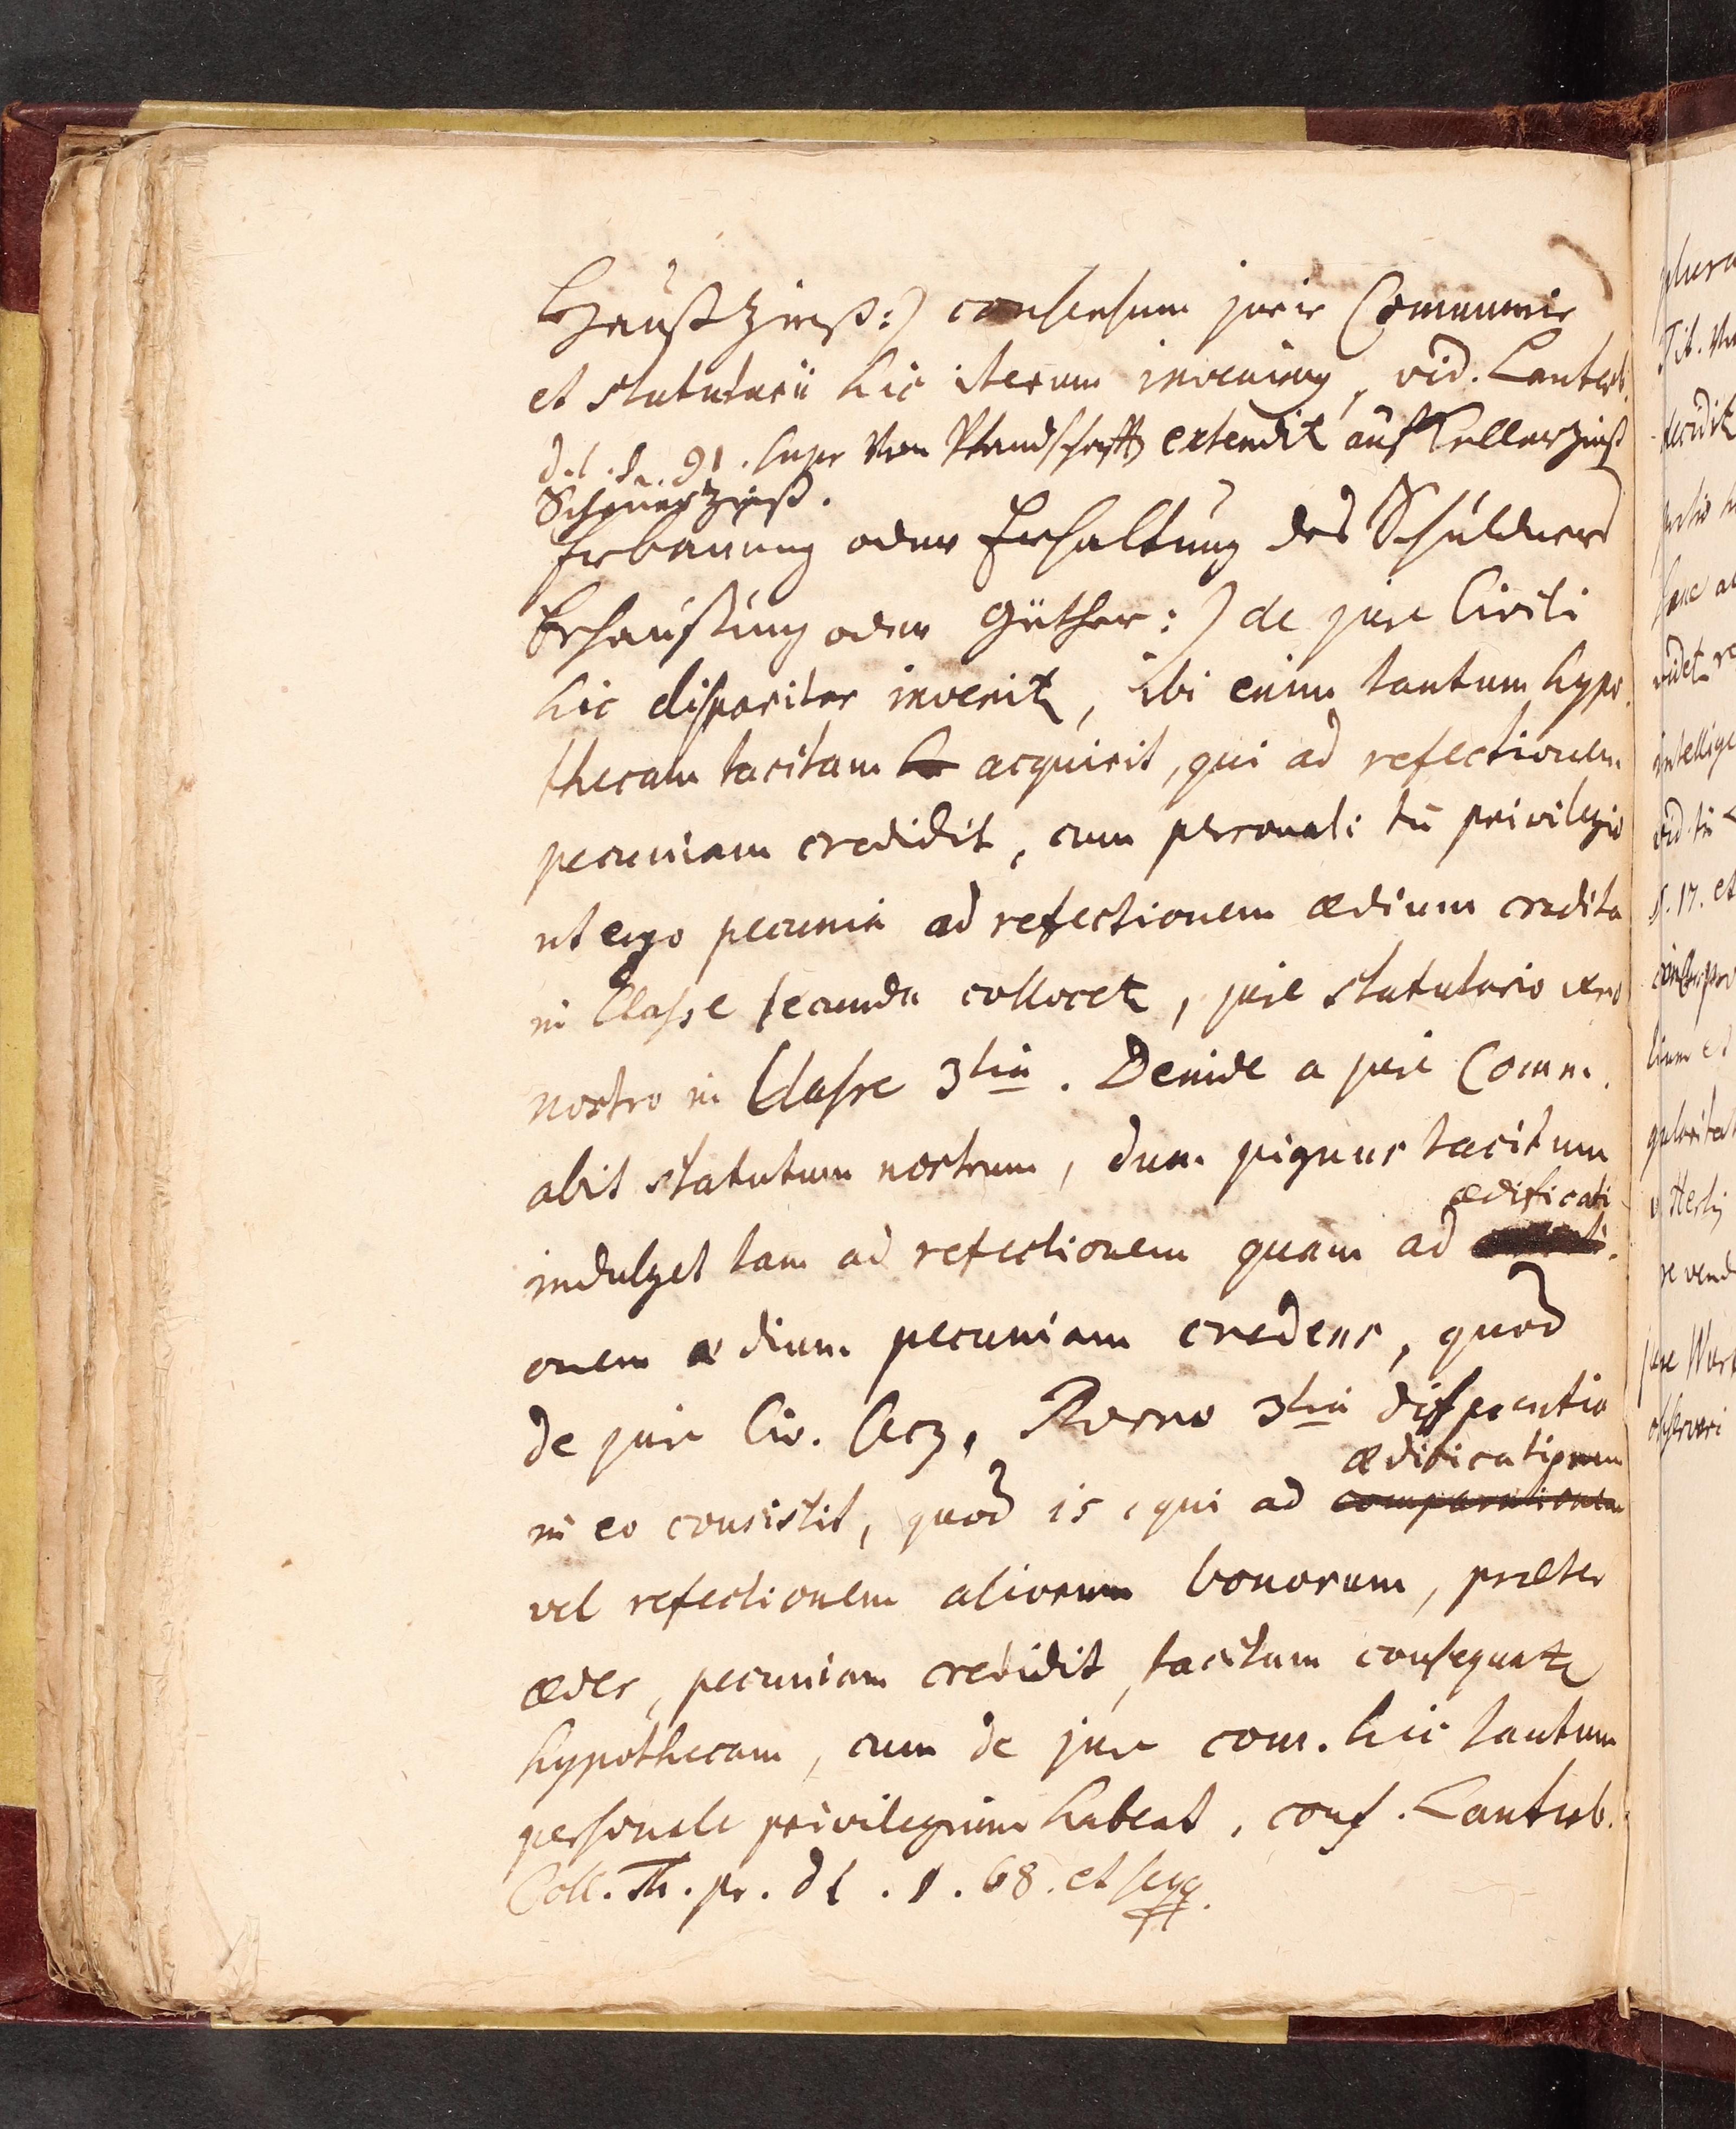 Haußzinß:) consensum juris Communis
et statutarii hic iterum invenimus, vid. Lauterb.
d. l. §. 91. hujus Von Pfandschafft extendit auf Kellerzinß
Scheuerzinß.
Erbauung oder Erhaltung des Schuldners
Behaußung oder Güther:) de jure Civili
hic dispariter invenitur, ibi enim tantum hypo
thecam tacitam acquirit, qui ad refectionem
pecuniam credidit, cum personali tn̄ privilegio
ut ergo pecunia ad refectionem ædium credita
in Classe secunda collocetur, jure statutario vero
nostro in Classe 3tiâ. Deinde a jure Comm.
abit statutum nostrum, dum pignus tacitum
ædificati
indulget tam ad refectionem quam ad
onem ædium pecuniam credens, quod
de jure Civ. Porro 3tia differentia
ædificationem
in eo consistit, quod is, qui ad comparationem
vel refectionem aliorum bonorum, præter
ædes, pecuniam credidit, tacitam consequatur
hypothecam, cum de jure com. hic tantum
personale privilegium habeat, conf. Lauterb.
Coll. Th. pr. d l. §. 68. et seqq.
plura
Tit.
intellige
§. 17. et
observari